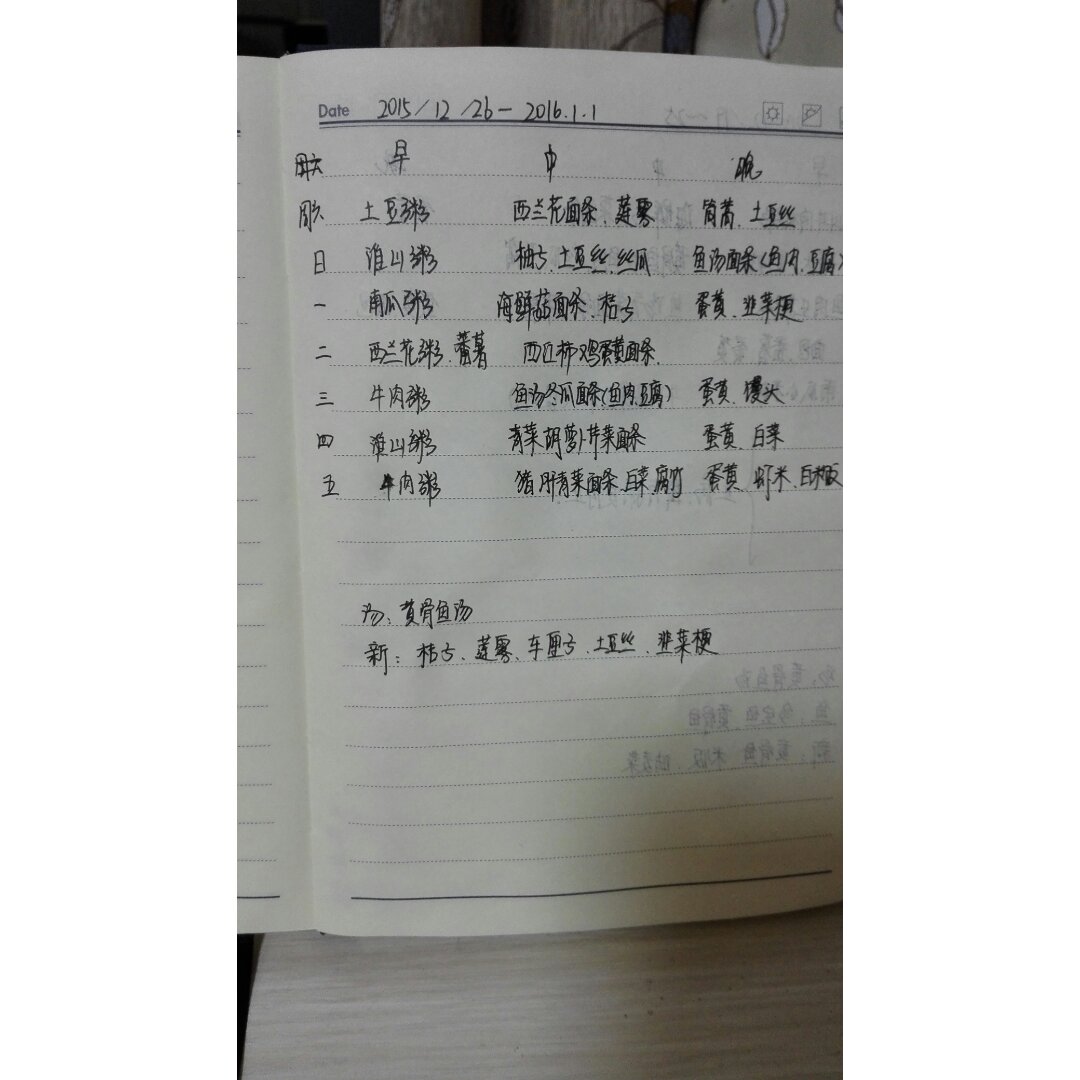 Date 2015/12/26-2016.1.1
周六 早 中 晚
周六 土豆粥 西兰花面条、莲雾 茼蒿、土豆丝
日 淮山粥 柚子、土豆丝、丝瓜 鱼汤面条(鱼肉、豆腐)
一 南瓜粥 海鲜菇面条、桔子 蛋黄、韭菜梗
二 西兰花粥、蕃薯 西红柿鸡蛋黄面条、
三 牛肉粥 鱼汤冬瓜面条(鱼肉、豆腐) 蛋黄、馒头
四 淮山粥 青菜胡萝卜芹菜面条 蛋黄、白菜
五 牛肉粥 猪肝青菜面条、白菜、腐竹 蛋黄、虾米、白米饭
汤:黄骨鱼汤
新:桔子、莲雾、车厘子、土豆丝、韭菜梗